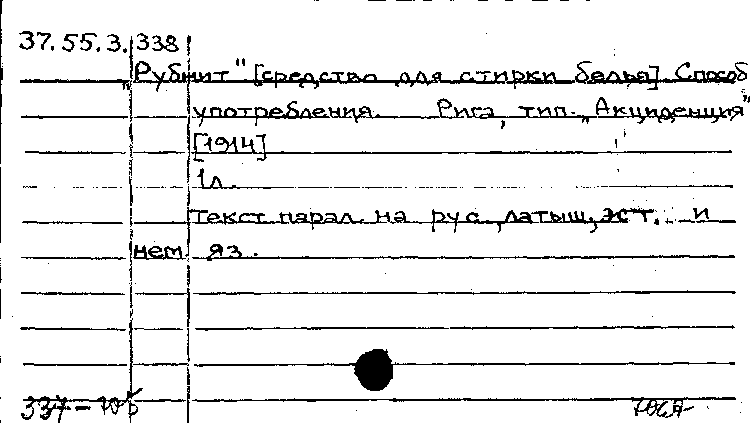 37.55.3.338
„Рубнит" [средство для стирки белья]. Способ
употребления. Рига, тип. „Акциденция"
[1914]
1л.
Текст парал. на рус, латыш, эст. и
нем яз.